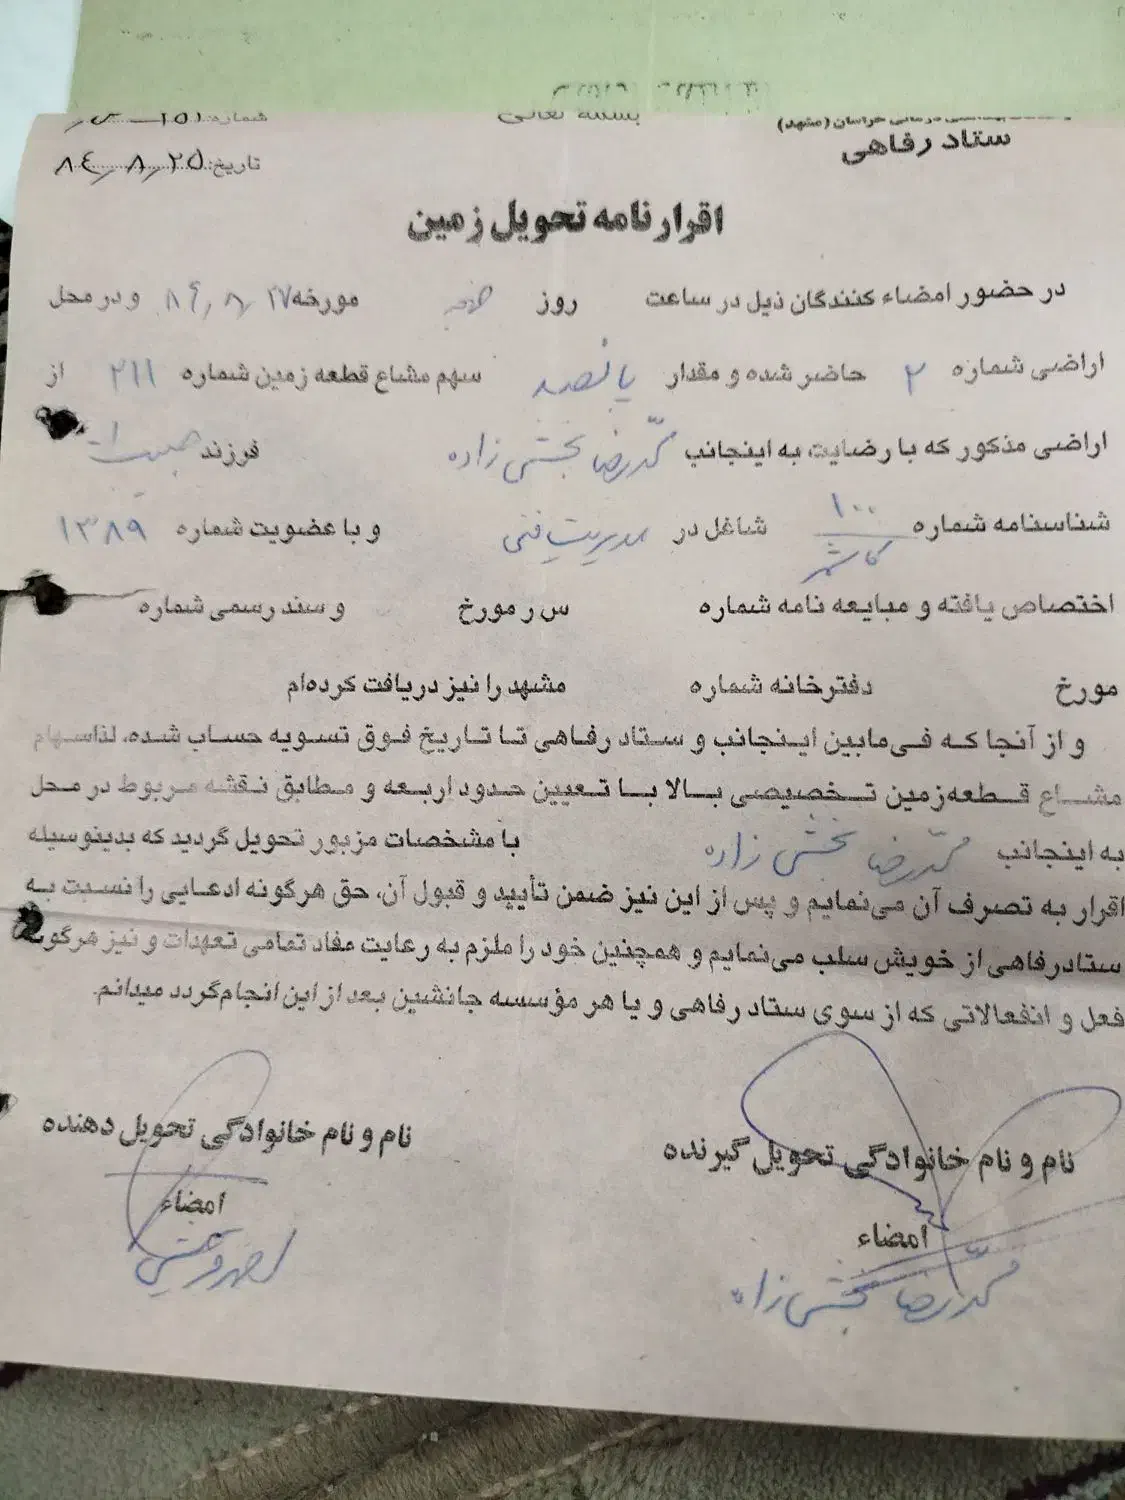 بسمه تعالی
درمانی خراسان (مشهد)
ستاد رفاهی
شماره:
تاریخ: ۸۴/۸/۲۵
اقرارنامه تحویل زمین
در حضور امضاء کنندگان ذیل در ساعت روز مورخه و در محل
اراضی شماره ۲ حاضر شده و مقدار پانصد سهم مشاع قطعه زمین شماره ۲۱۱ از
اراضی مذکور که با رضایت به اینجانب محمدرضا بخشی زاده فرزند
شناسنامه شماره ۱۰۰ کاشمر شاغل در مدیریت فنی و با عضویت شماره ۱۳۸۹
اختصاص یافته و مبایعه نامه شماره س ر مورخ و سند رسمی شماره
مورخ دفترخانه شماره مشهد را نیز دریافت کرده‌ام
و از آنجا که فی‌مابین اینجانب و ستاد رفاهی تا تاریخ فوق تسویه حساب شده، لذا سهام
مشاع قطعه‌زمین تخصیصی بالا با تعیین حدود اربعه و مطابق نقشه مربوط در محل
به اینجانب محمدرضا بخشی زاده با مشخصات مزبور تحویل گردید که بدینوسیله
اقرار به تصرف آن می‌نمایم و پس از این نیز ضمن تأیید و قبول آن، حق هرگونه ادعایی را نسبت به
ستادرفاهی از خویش سلب می‌نمایم و همچنین خود را ملزم به رعایت مفاد تمامی تعهدات و نیز هرگونه
فعل و انفعالاتی که از سوی ستاد رفاهی و یا هر مؤسسه جانشین بعد از این انجام‌گردد میدانم.
نام و نام خانوادگی تحویل گیرنده
امضاء
محمدرضا بخشی زاده
نام و نام خانوادگی تحویل دهنده
امضاء